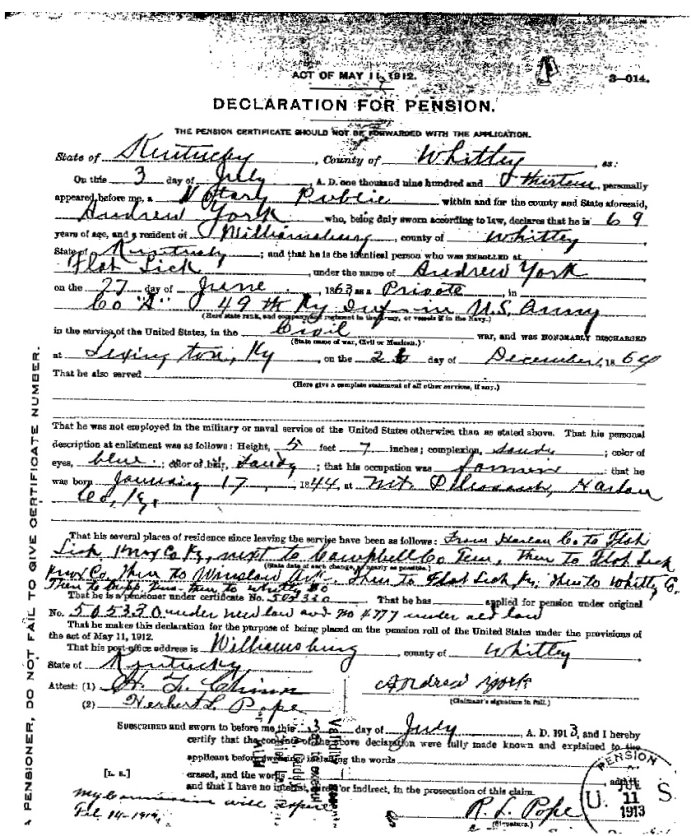 ACT OF MAY 11, 1912.
3-014.
DECLARATION FOR PENSION.
THE PENSION CERTIFICATE SHOULD NOT BE FORWARDED WITH THE APPLICATION.
State of Kentucky, County of Whitley, ss:
On this 3 day of July, A. D. one thousand nine hundred and thirteen, personally
appeared before me, a Notary Public within and for the county and State aforesaid,
Andrew York who, being duly sworn according to law, declares that he is 69
years of age, and a resident of Williamsburg, county of Whitley
State of Kentucky; and that he is the identical person who was ENROLLED at
Flat Lick, under the name of Andrew York
on the 27 day of June, 1863 as a Private, in
Co "A" 49th Ky Inf in U.S. Army
(Here state rank, and company and regiment in the Army, or vessels if in the Navy.)
in the service of the United States, in the Civil war, and was HONORABLY DISCHARGED
(State name of war, Civil or Mexican.)
at Lexington, Ky, on the 26 day of December, 1864
That he also served
(Here give a complete statement of all other services, if any.)
That he was not employed in the military or naval service of the United States otherwise than as stated above. That his personal
description at enlistment was as follows: Height, 5 feet 7 inches; complexion, Sandy; color of
eyes, blue; color of hair, Sandy; that his occupation was farmer; that he
was born January 17, 1844, at Mt. Pleasant, Harlan
Co, Ky.
That his several places of residence since leaving the service have been as follows: From Harlan Co to Flat
Lick Knox Co Ky, next to Campbell Co Tenn, then to Flat Lick
(State date of each change, as nearly as possible.)
Knox Co, then to Winslow Ark. then to Flat Lick Ky, then to Whitley Co.
That he is a pensioner under certificate No. 505330. That he has applied for pension under original
No. 505330 under new law and no 4777 under old law
That he makes this declaration for the purpose of being placed on the pension roll of the United States under the provisions of
the act of May 11, 1912.
That his post-office address is Williamsburg, county of Whitley
State of Kentucky
Attest: (1)
Andrew York
(Claimant's signature in full.)
(2) Herbert L. Pope
SUBSCRIBED and sworn to before me this 3 day of July A. D. 1913, and I hereby
certify that the contents of the above declaration were fully made known and explained to the
applicant before swearing, including the words
[L. S.] erased, and the words
and that I have no interest, direct or indirect, in the prosecution of this claim.
my Commission will expire
Feb 14-1914
R. L. Pope
(Signature.)
PENSION
U. S.
JUL
11
1913
A PENSIONER, DO NOT FAIL TO GIVE CERTIFICATE NUMBER.